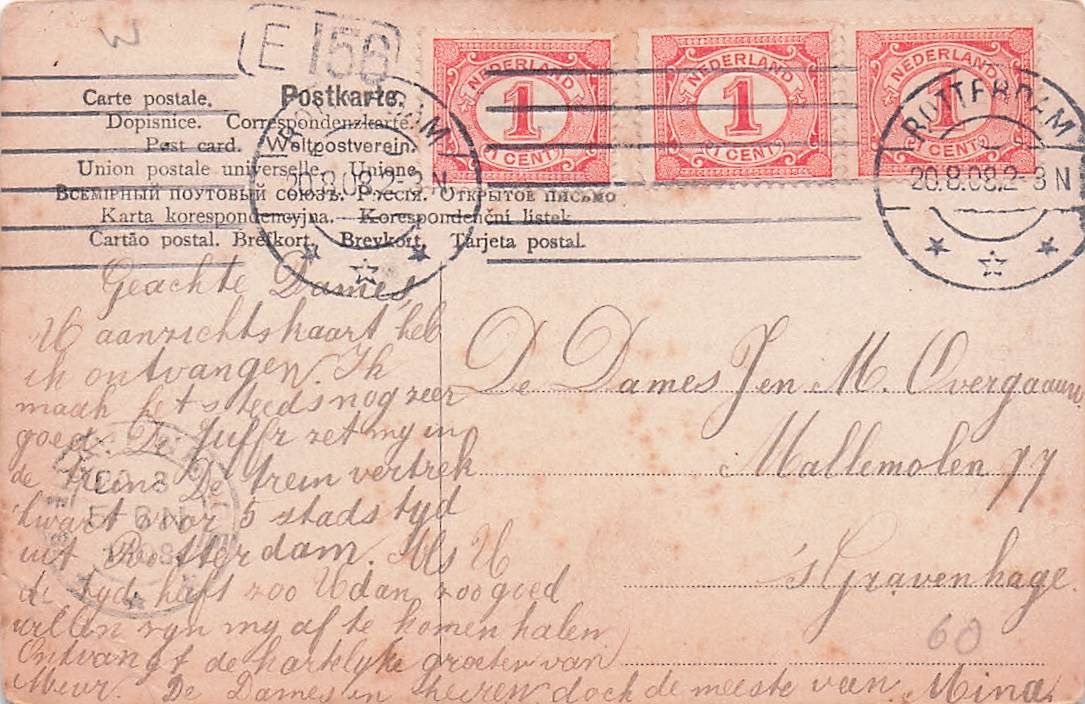 E 156
NEDERLAND
1
1 CENT
NEDERLAND
1
1 CENT
NEDERLAND
1
1 CENT
ROTTERDAM
20.8.08.2-3 N
ROTTERDAM
20.8.08.2-3 N
Carte postale. Postkarte.
Dopisnice. Correspondenzkarte.
Post card. Weltpostverein.
Union postale universelle. Unione
Всемірный почтовый союзъ. Россія. Открытое письмо
Karta korespondencyjna. Korespondenční lístek.
Cartão postal. Brefkort. Brevkort. Tarjeta postal.
Geachte Dames,
U aanzichtskaart heb
ik ontvangen. Ik
maak het steeds nog zeer
goed. De Juffr zet my in
de trein. De trein vertrek
kwart voor 5 stads tyd
uit Rotterdam. Als U
de tyd heeft zoo U dan zoo goed
willen zyn my af te komen halen
Ontvangt de hartelyke groeten van
Mevr. De Dames en Heeren doch de meeste van Mina
De Dames J en M. Overgaauw
Mallemolen 77
's Gravenhage.
60